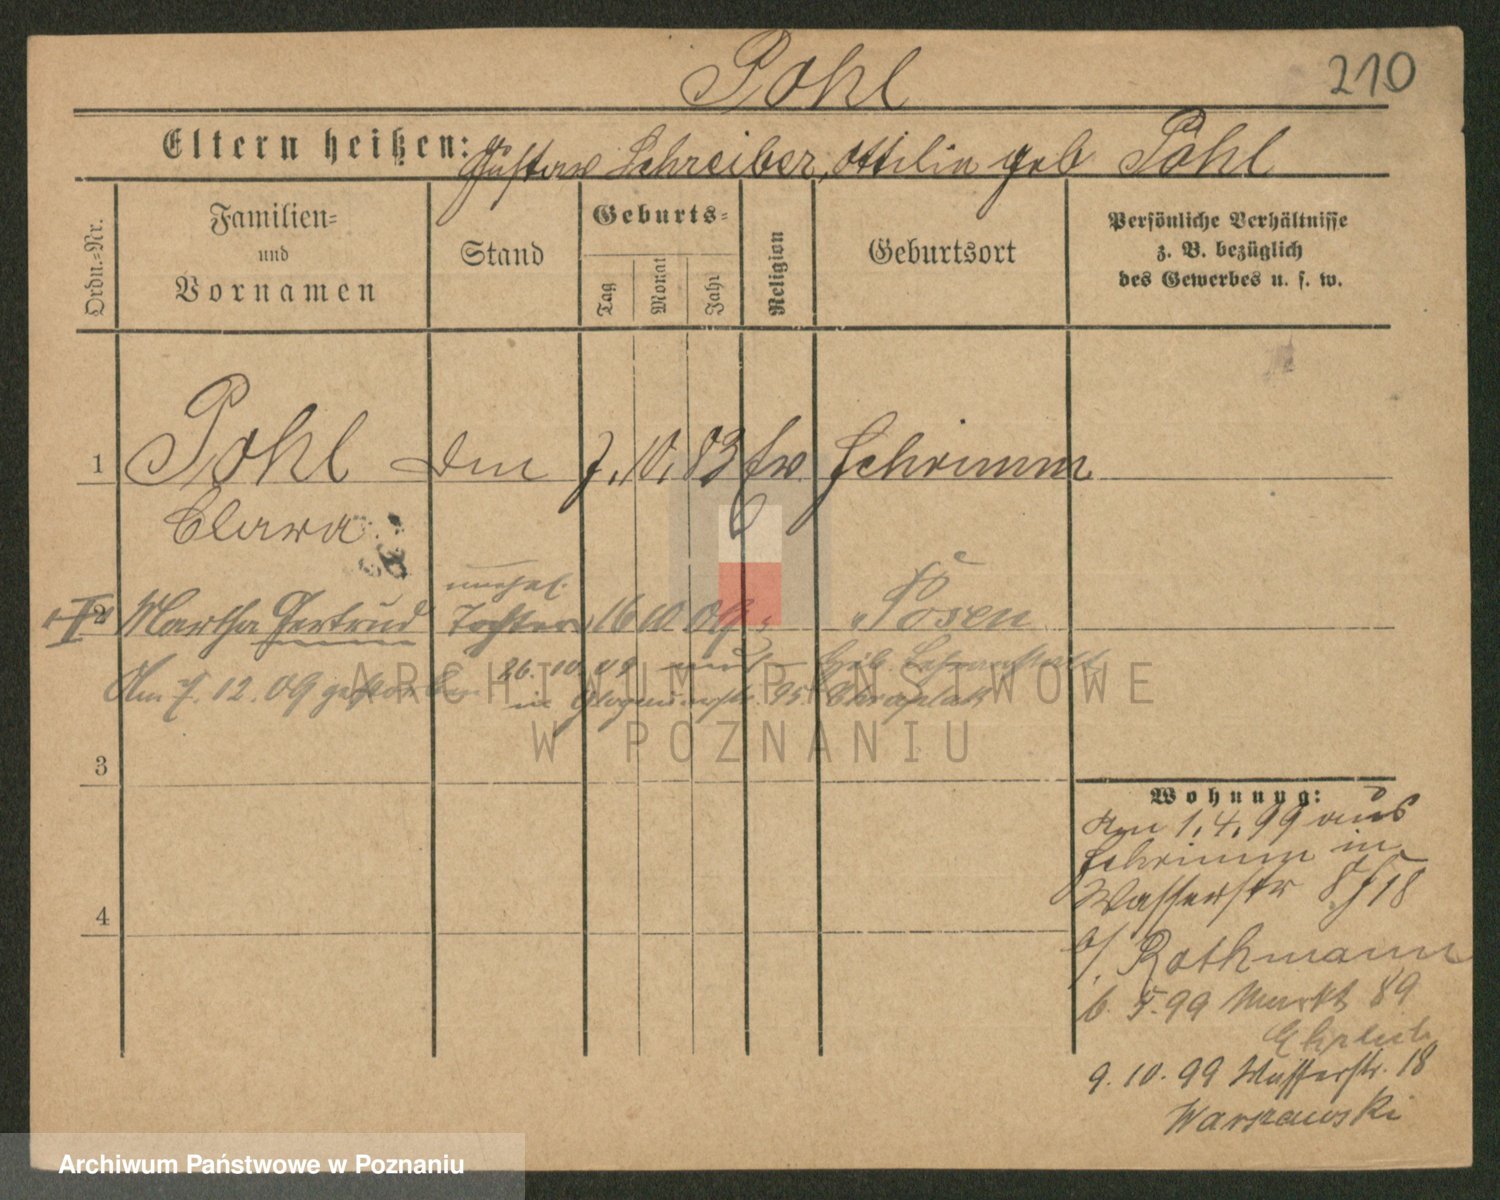 Pohl
210
Eltern heißen: Gustav Schreiber, Ottilie geb Pohl
Ordn.-Nr.
Familien- und Vornamen
Stand
Geburts-
Tag
Monat
Jahr
Religion
Geburtsort
Persönliche Verhältnisse
z. B. bezüglich
des Gewerbes u. s. w.
1 Pohl 7. 10. 83 Schrimm
Clara
unehel.
2 Martha Gertrud Tochter 16 10 09 Posen
26. 10. 09
Am 7. 12. 09 gestorben
in
ARCHIWUM PAŃSTWOWE
W POZNANIU
3
Wohnung:
Am 1. 4. 99 aus
Schrimm in
Wasserstr 18
4
b/ Rothmann
6. 5. 99 Markt 89
Ehrlich
9. 10. 99 Wasserstr. 18
Warszawski
Archiwum Państwowe w Poznaniu